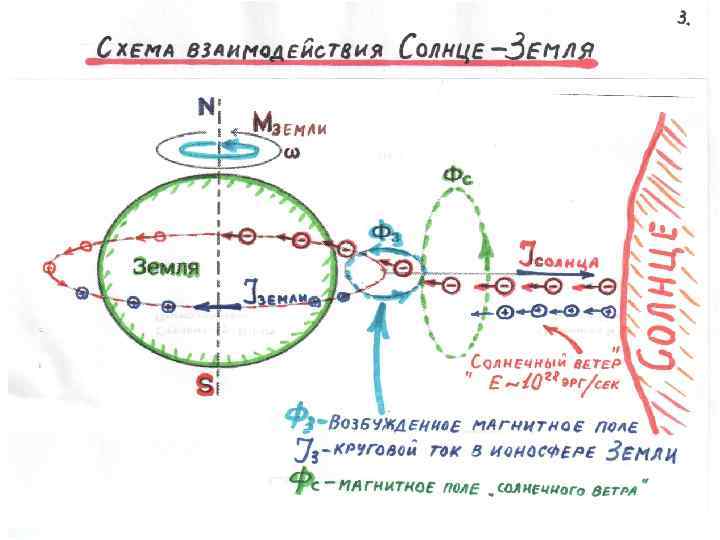 3.
Схема взаимодействия Солнце – Земля
N
Mземли
ω
Фс
Фз
Jсолнца
Земля
Jземли
Солнце
"Солнечный ветер"
E ~ 10²⁸ эрг/сек
S
Фз – возбужденное магнитное поле
Jз – круговой ток в ионосфере Земли
Фс – магнитное поле „солнечного ветра"